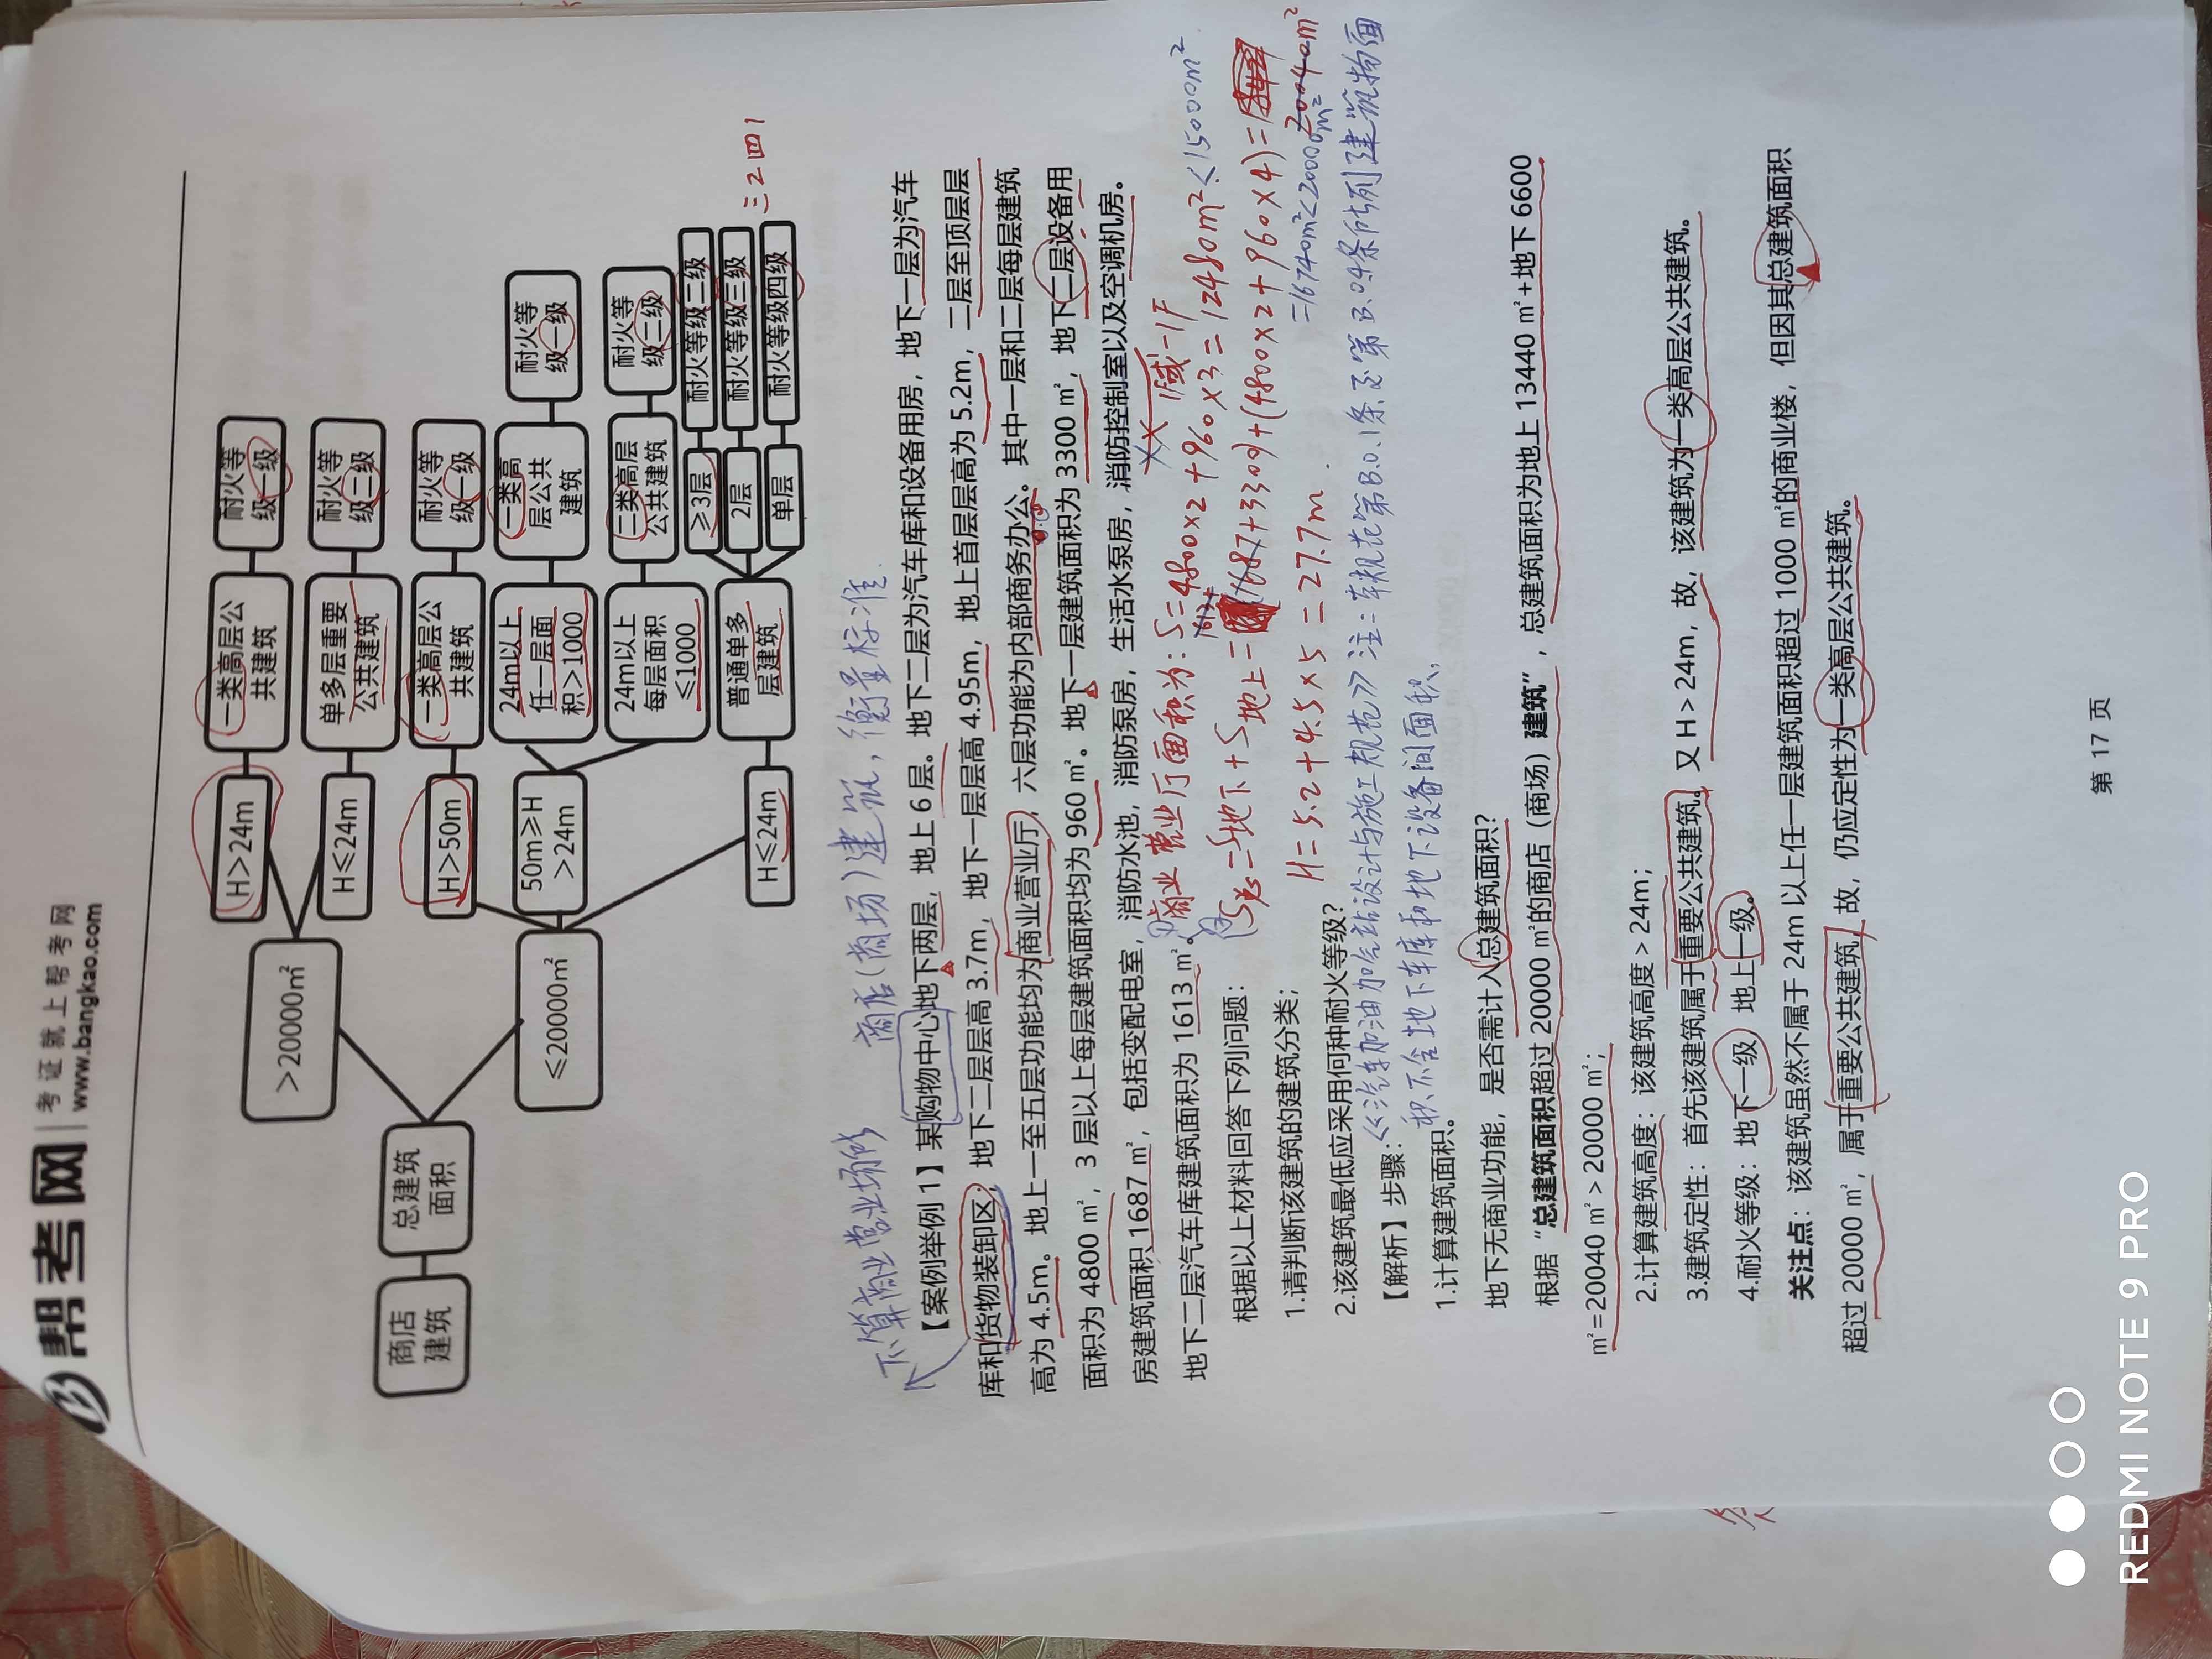 帮考网 | 考证就上帮考网
www.bangkao.com
商店建筑
总建筑面积
>20000㎡
≤20000㎡
H>24m
H≤24m
H>50m
50m≥H>24m
H≤24m
一类高层公共建筑
单多层重要公共建筑
一类高层公共建筑
24m以上任一层面积>1000
24m以上每层面积≤1000
普通单多层建筑
耐火等级一级
耐火等级二级
耐火等级一级
一类高层公共建筑
二类高层公共建筑
≥3层
2层
单层
耐火等级一级
耐火等级二级
耐火等级二级
耐火等级三级
耐火等级四级
三2四1
不算商业营业场所
商店(商场)建筑,衡量标准.
【案例举例 1】某购物中心地下两层，地上 6 层。地下二层为汽车库和设备用房，地下一层为汽车
库和货物装卸区，地下二层层高 3.7m，地下一层层高 4.95m，地上首层层高为 5.2m，二层至顶层层
高为 4.5m。地上一至五层功能均为商业营业厅，六层功能为内部商务办公。其中一层和二层每层建筑
面积为 4800 ㎡，3 层以上每层建筑面积均为 960 ㎡。地下一层建筑面积为 3300 ㎡，地下二层设备用
房建筑面积 1687 ㎡，包括变配电室，消防水池，消防泵房，生活水泵房，消防控制室以及空调机房。
地下二层汽车库建筑面积为 1613 ㎡。
商业营业厅面积为:S=4800×2+960×3=12480m²<15000m²
根据以上材料回答下列问题：
S总=S地下+S地上=
1687+3300+(4800×2+960×4)=
20040m²
1.请判断该建筑的建筑分类；
H=5.2+4.5×5=27.7m.
=16740m²<20000m²
2.该建筑最低应采用何种耐火等级？
【解析】步骤：
《汽车加油加气站设计与施工规范》注:本规范第B.0.1条至第B.0.4条所列建筑物面
积不含地下车库和地下设备间面积,
1.计算建筑面积。
地下无商业功能，是否需计入总建筑面积？
根据“总建筑面积超过 20000 ㎡的商店（商场）建筑”，总建筑面积为地上 13440 ㎡+地下 6600
㎡=20040 ㎡＞20000 ㎡；
2.计算建筑高度：该建筑高度＞24m；
3.建筑定性：首先该建筑属于重要公共建筑。又 H＞24m，故，该建筑为一类高层公共建筑。
4.耐火等级：地下一级，地上一级。
关注点：该建筑虽然不属于 24m 以上任一层建筑面积超过 1000 ㎡的商业楼，但因其总建筑面积
超过 20000 ㎡，属于重要公共建筑，故，仍应定性为一类高层公共建筑。
第 17 页
REDMI NOTE 9 PRO